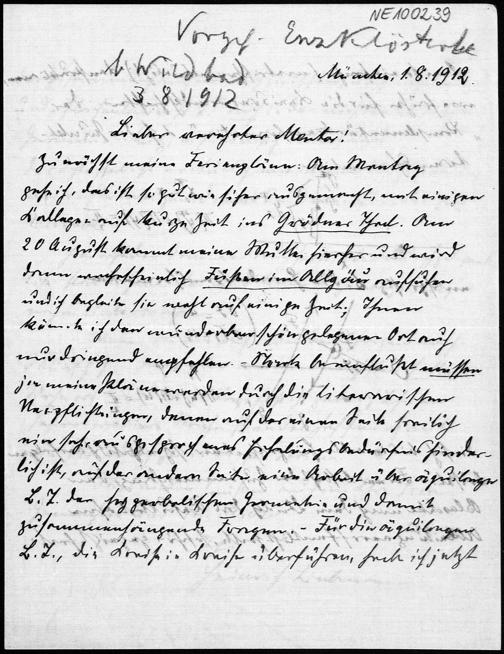 NE100239
Vorgef. Enzklösterle
b/ Wildbad
3 8. 1912
München, 1.8.1912.
Lieber verehrter Mentor!
Zunächst meine Ferienpläne: Am Montag
geh ich, das ist so gut wie sicher ausgemacht, mit einigen
Kollegen auf kurze Zeit ins Grödner Thal. Am
20 August kommt meine Mutter hierher und wird
dann wahrscheinlich Füssen im Allgäu aufsuchen
und ich begleite sie wohl auf einige Zeit; Ihnen
könnte ich den wunderbar schön gelegenen Ort auch
nur dringend empfehlen. - Stark beeinflußt müssen
ja meine Pläne werden durch die literarischen
Verpflichtungen, denen auf der einen Seite freilich
ein sehr ausgesprochenes Erholungsbedürfnis hinder-
lich ist, auf der andern Seite eine Arbeit über äquilonge
B. T. der hyperbolischen Geometrie und damit
zusammenhängende Fragen. - Für die äquilongen
B. T., die Kreise in Kreise überführen, hab ich jetzt